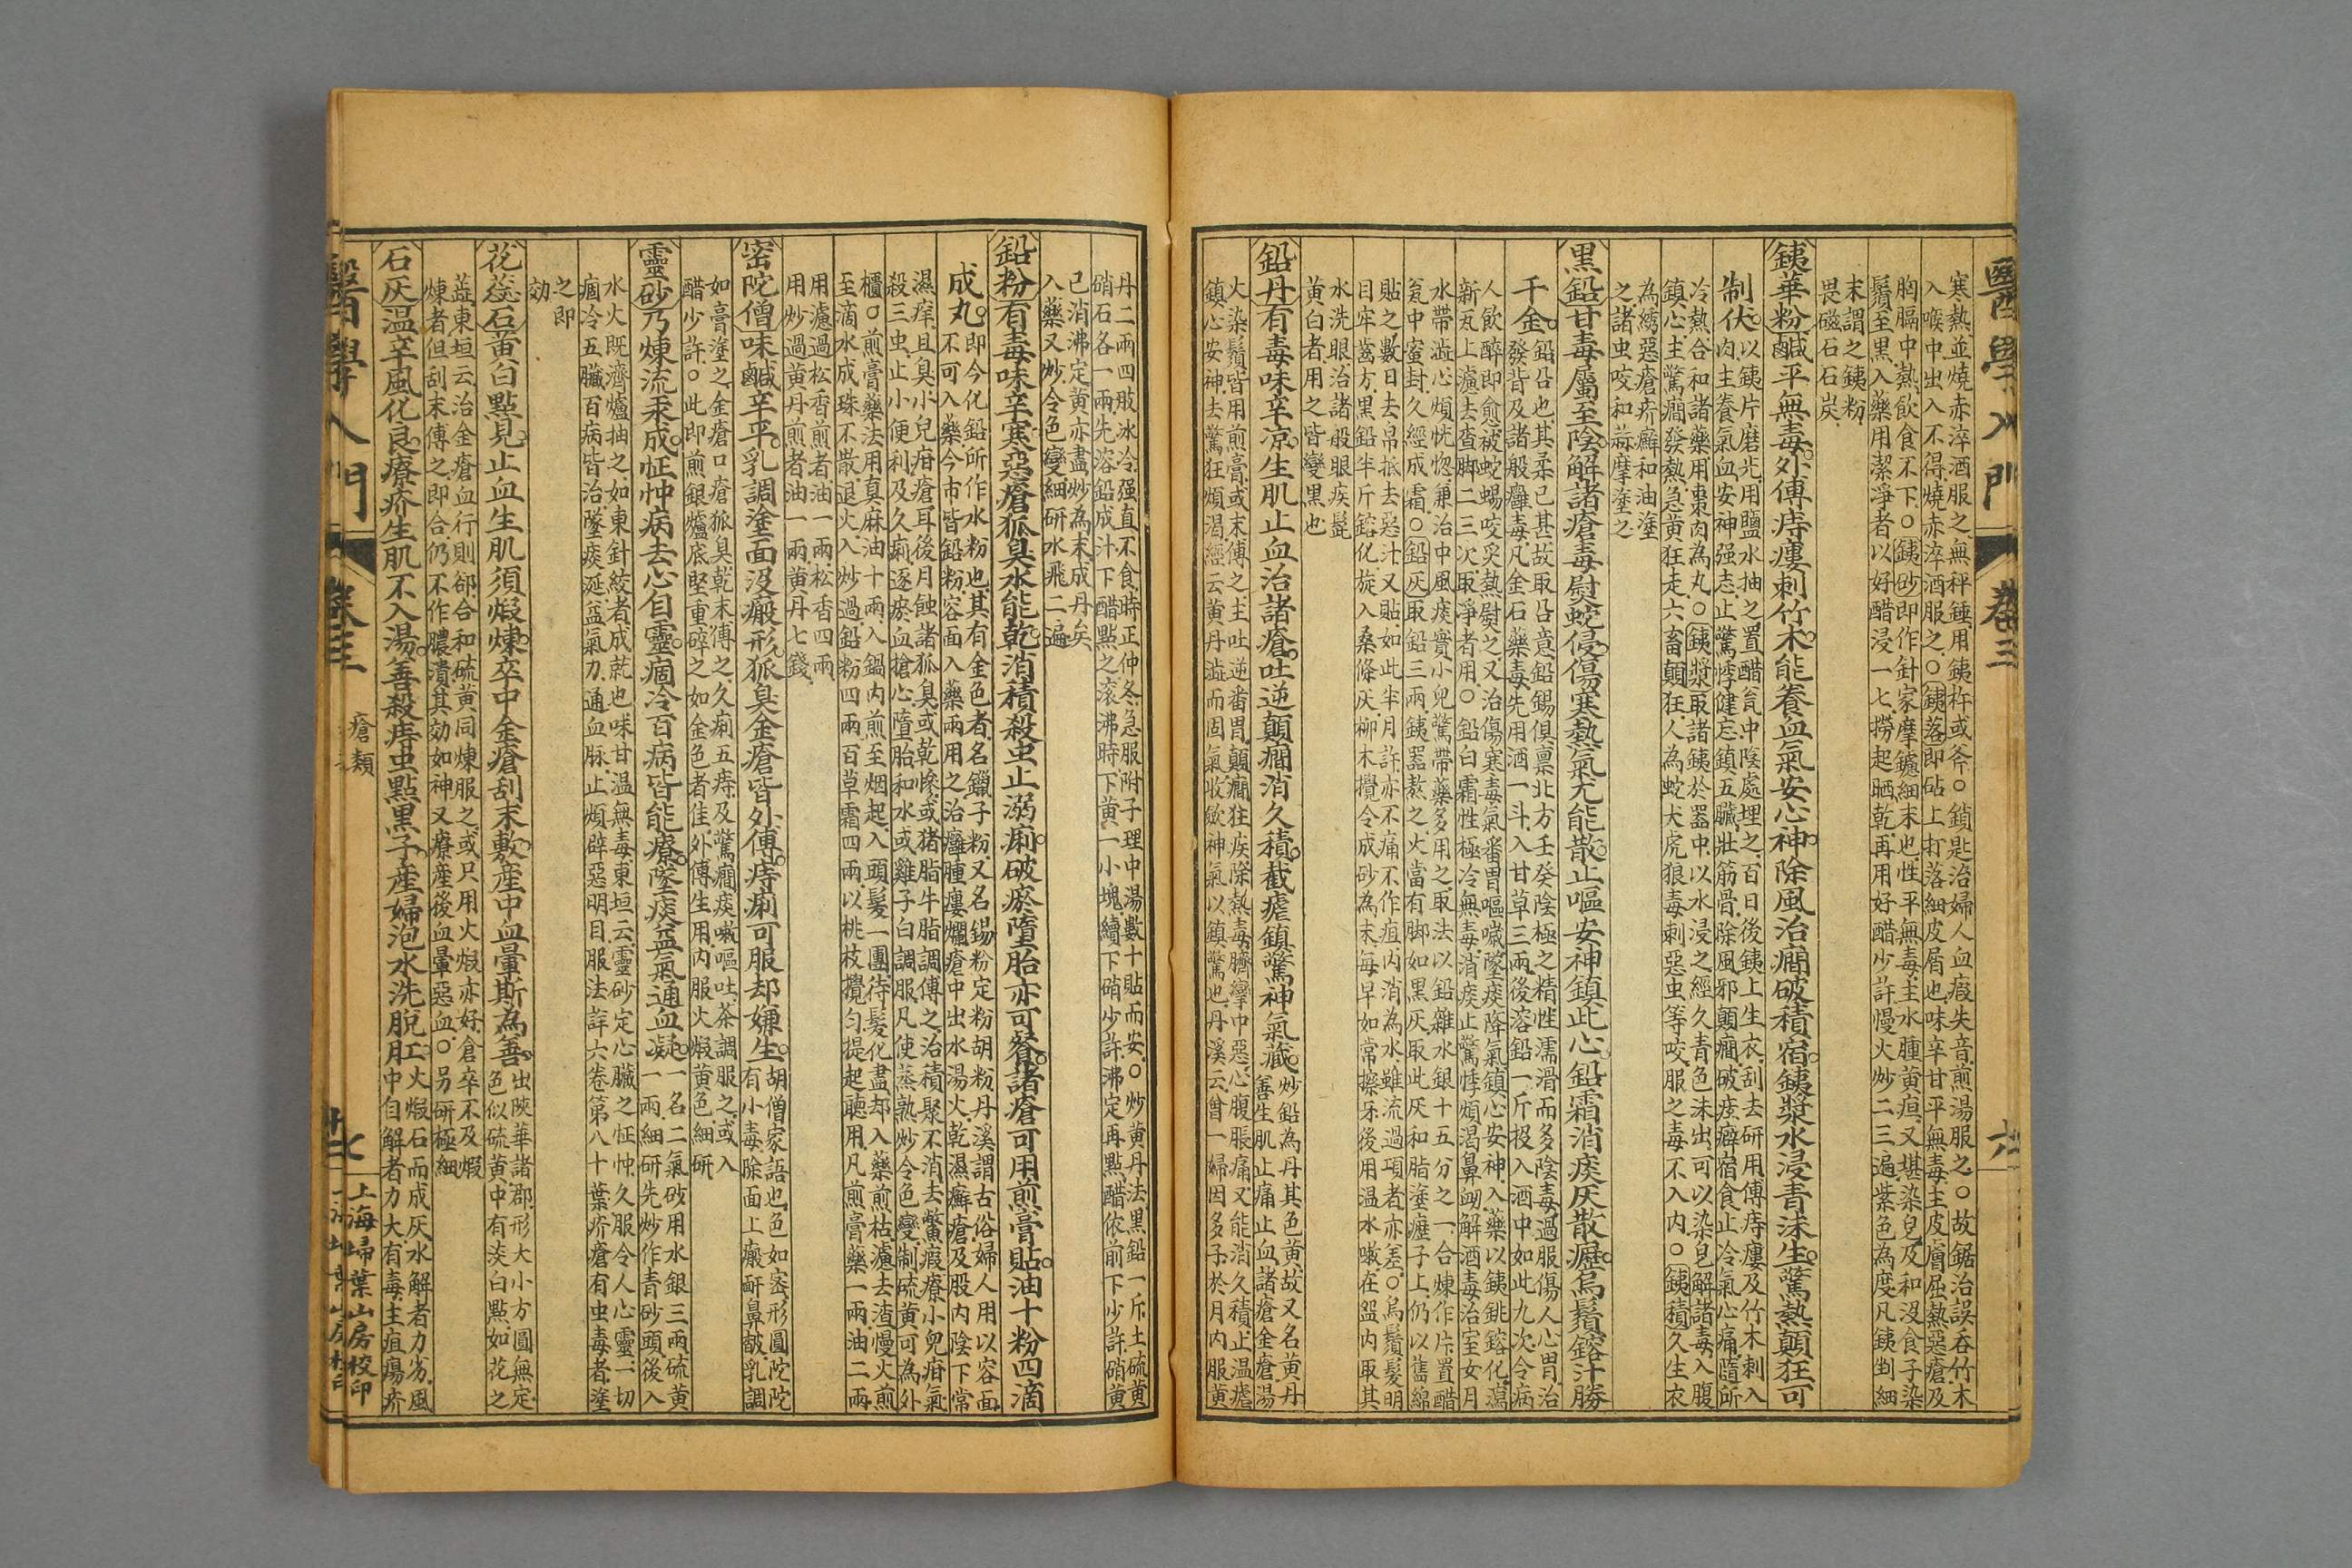 醫學入門 卷三 六
寒熱並燒赤淬酒服之無秤錘用鐵杵或斧○鎖匙治婦人血瘕失音煎湯服之○故鋸治誤吞竹木
入喉中出入不得燒赤淬酒服之○鐵落即砧上打落細皮屑也味辛甘平無毒主皮膚屈熱惡瘡及
胸膈中熱飲食不下○鐵砂即作針家摩鑢細末也性平無毒主水腫黃疸又堪染皃及和沒食子染
鬚至黑入藥用潔淨者以好醋浸一七撈起晒乾再用好醋少許慢火炒二三遍紫色為度凡鐵剉細
末謂之鐵粉
畏磁石石炭
鐵華粉鹹平無毒外傅痔瘻刺竹木能養血氣安心神除風治癇破積宿鐵漿水浸青沫生驚熱顛狂可
制伏
以鐵片磨光用鹽水抽之置醋瓮中陰處埋之百日後鐵上生衣刮去研用傅痔瘻及竹木刺入
肉主養氣血安神强志止驚悸健忘鎮五臟壯筋骨除風邪顛癇破痃癖宿食止冷氣心痛隨所
冷熱合和諸藥用棗肉為丸○鐵漿取諸鐵於器中以水浸之經久青色沫出可以染皃解諸毒入腹
鎮心主驚癇發熱急黃狂走六畜顛狂人為蛇犬虎狼毒刺惡虫等咬服之毒不入內○鐵積久生衣
為綉惡瘡疥癬和油塗
之諸虫咬和蒜摩塗之
黑鉛甘毒屬至陰解諸瘡毒熨蛇侵傷寒熱氣尤能散止嘔安神鎮此心鉛霜消痰灰散癧烏鬚鎔汁勝
千金
鉛沿也其柔已甚故取沿意鉛錫俱禀北方壬癸陰極之精性濡滑而多陰毒過服傷人心胃治
發背及諸般癰毒凡金石藥毒先用酒一斗入甘草三兩後溶鉛一斤投入酒中如此九次令病
人飲醉即愈被蛇蝎咬炙熱熨之又治傷寒毒氣番胃嘔噦墜痰降氣鎮心安神入藥以鐵銚鎔化瀉
新瓦上濾去查脚二三次取淨者用○鉛白霜性極冷無毒消痰止驚悸煩渴鼻衄解酒毒治室女月
水帶澁心煩恍惚兼治中風痰實小兒驚帶藥多用之取法以鉛雜水銀十五分之一合煉作片置醋
瓮中蜜封久經成霜○鉛灰取鉛三兩鐵器熬之火當有脚如黑灰取此灰和脂塗癧子上仍以舊綿
貼之數日去帛抵去惡汁又貼如此半月許亦不痛不作疽內消為水雖流過項者亦差○烏鬚髮明
目牢齒方黑鉛半斤鎔化旋入桑條灰柳木攪令成砂為末每早如常擦牙後用温水噉在盌內取其
水洗眼治諸般眼疾髭
黃白者用之皆變黑也
鉛丹有毒味辛凉生肌止血治諸瘡吐逆顛癇消久積截瘧鎮驚神氣藏
炒鉛為丹其色黃故又名黃丹
善生肌止痛止血諸瘡金瘡湯
火染鬚皆用煎膏或末傅之主吐逆番胃顛癇狂疾除熱毒臍攣中惡心腹脹痛又能消久積止温瘧
鎮心安神去驚狂煩渴經云黃丹澁而固氣收歛神氣以鎮驚也丹溪云曾一婦因多子於月內服黃
丹二兩四肢冰冷强直不食時正仲冬急服附子理中湯數十貼而安○炒黃丹法黑鉛一斤土硫黃
硝石各一兩先溶鉛成汁下醋點之滾沸時下黃一小塊續下硝少許沸定再點醋依前下少許硝黃
已消沸定黃亦盡炒為末成丹矣
入藥又炒令色變細研水飛二遍
鉛粉有毒味辛寒惡瘡狐臭水能乾消積殺虫止溺痢破瘀墮胎亦可餐諸瘡可用煎膏貼油十粉四滴
成丸
即今化鉛所作水粉也其有金色者名鑞子粉又名錫粉定粉胡粉丹溪謂古俗婦人用以容面
不可入藥今市皆鉛粉容面入藥兩用之治癰腫瘻爛瘡中出水湯火乾濕癬瘡及股內陰下常
濕痒且臭小兒疳瘡耳後月蝕諸狐臭或乾慘或猪脂牛脂調傅之治積聚不消去鱉瘕療小兒疳氣
殺三虫止小便利及久痢逐瘀血搶心墮胎和水或雞子白調服凡使蒸熟炒令色變制硫黃可為外
櫃○煎膏藥法用真麻油十兩入鍋內煎至烟起入頭髮一團待髮化盡却入藥煎枯濾去渣慢火煎
至滴水成珠不散退火入炒過鉛粉四兩百草霜四兩以桃枝攪匀提起聽用凡煎膏藥一兩油二兩
用濾過松香煎者油一兩松香四兩
用炒過黃丹煎者油一兩黃丹七錢
密陀僧味鹹辛平乳調塗面沒瘢形狐臭金瘡皆外傅痔痢可服却嫌生
胡僧家語也色如密形圓陀陀
有小毒除面上瘢䵟鼻皶乳調
如膏塗之金瘡口瘡狐臭乾末傅之久痢五痔及驚癇痰嗽嘔吐茶調服之或入
醋少許○此即煎銀爐底堅重碎之如金色者佳外傅生用內服火煅黃色細研
靈砂乃煉流汞成怔忡病去心自靈痼冷百病皆能療墜痰益氣通血凝
一名二氣砂用水銀三兩硫黃
一兩細研先炒作青砂頭後入
水火既濟爐抽之如束針絞者成就也味甘温無毒東垣云靈砂定心臟之怔忡久服令人心靈一切
痼冷五臟百病皆治墜痰涎益氣力通血脉止煩辟惡明目服法詳六卷第八十葉疥瘡有虫毒者塗
之即
効
花蕊石黃白點見止血生肌須煅煉卒中金瘡刮末敷產中血暈斯為善
出陝華諸郡形大小方圓無定
色似硫黃中有淡白點如花之
蕋東垣云治金瘡血行則郤合和硫黃同煉服之或只用火煅亦好倉卒不及煅
煉者但刮末傅之即合仍不作膿潰其効如神又療產後血暈惡血○另研極細
石灰温辛風化良療疥生肌不入湯善殺痔虫點黑子產婦泡水洗脫肛
火煅石而成灰水解者力劣風
中自解者力大有毒主疽瘍疥
醫學入門 卷三 瘡類 七 上海埽葉山房校印